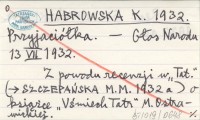 HABROWSKA K. 1932.
Przyjaciółka. — Głos Narodu
13 VII 1932.
Z powodu recenzji w „Tat."
(→ SZCZEPAŃSKA M. M. 1932 a) o
książce „Uśmiech Tatr" M. Ostra-
wickiej.